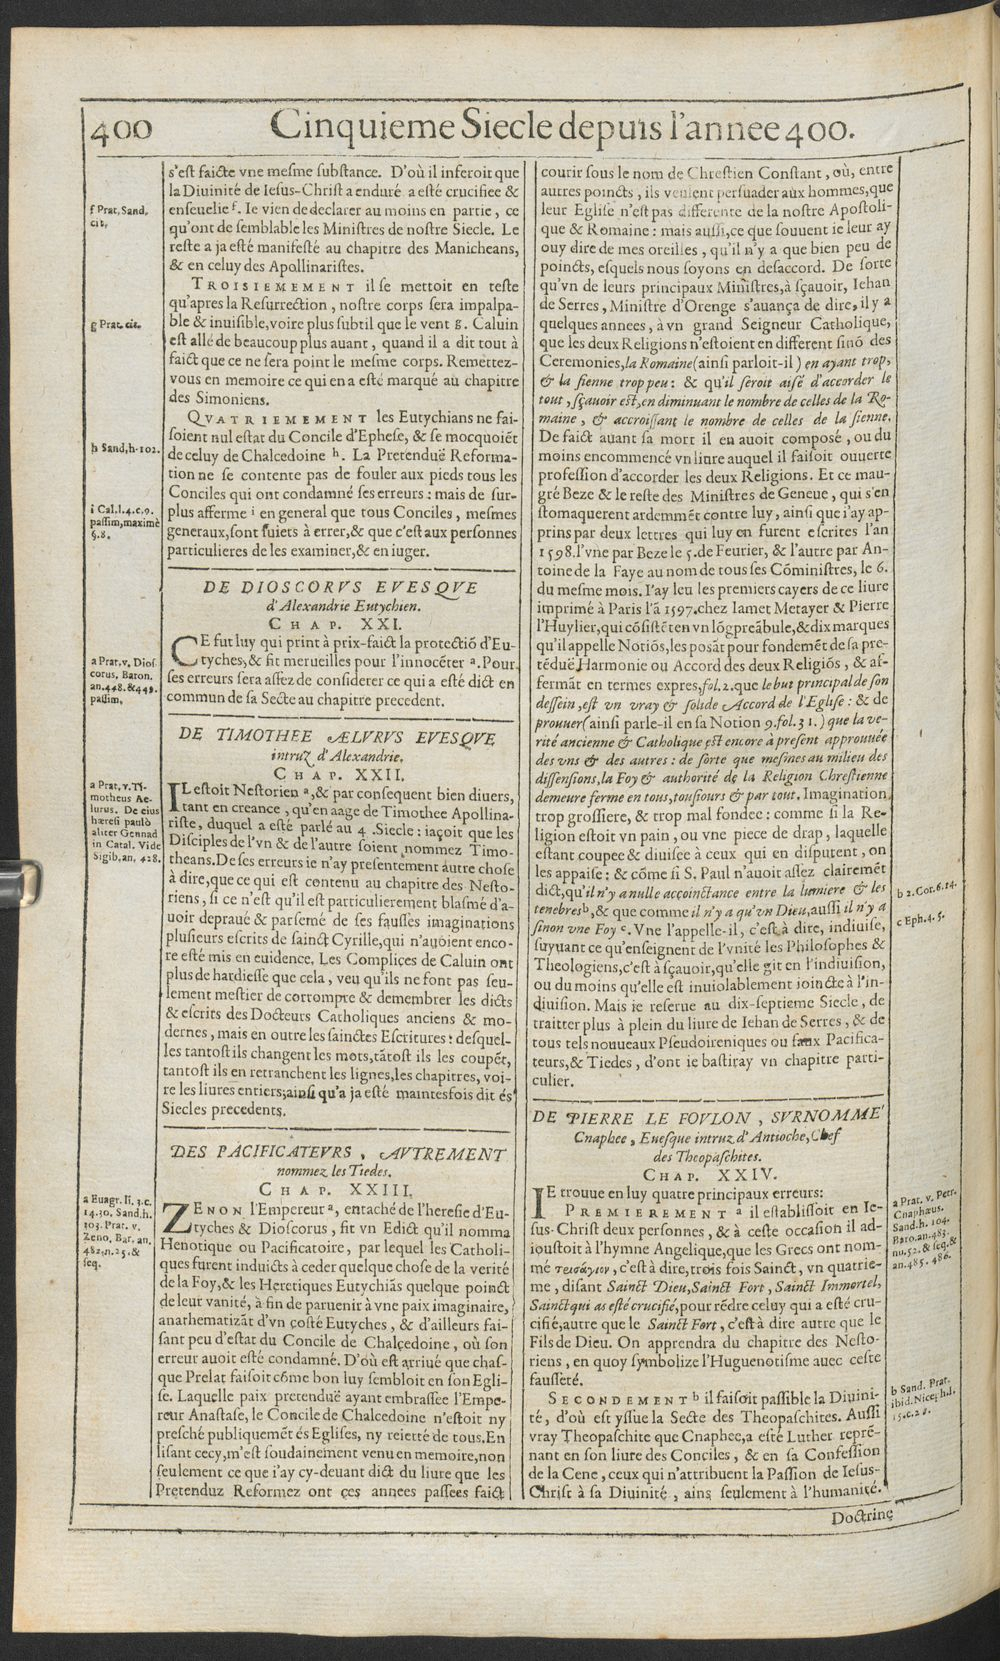 400 Cinquieme Siecle depuis l'annee 400.
s'est faicte vne mesme substance. D'où il inferoit que
la Diuinité de Iesus-Christ a enduré a esté crucifiee &
enseuelie f. Ie vien de declarer au moins en partie, ce
qu'ont de semblable les Ministres de nostre Siecle. Le
reste a ja esté manifesté au chapitre des Manicheans,
& en celuy des Apollinaristes.
TROISIEMEMENT il se mettoit en teste
qu'apres la Resurrection, nostre corps sera impalpa-
ble & inuisible, voire plus subtil que le vent g. Caluin
est allé de beaucoup plus auant, quand il a dit tout à
faict que ce ne sera point le mesme corps. Remettez-
vous en memoire ce qui en a esté marqué au chapitre
des Simoniens.
QVATRIEMEMENT les Eutychians ne fai-
soient nul estat du Concile d'Ephese, & se mocquoiēt
de celuy de Chalcedoine h. La Pretenduë Reforma-
tion ne se contente pas de fouler aux pieds tous les
Conciles qui ont condamné ses erreurs: mais de sur-
plus afferme i en general que tous Conciles, mesmes
generaux, sont suiets à errer, & que c'est aux personnes
particulieres de les examiner, & en iuger.
f Prat, Sand,
cit,
g Prat. cit.
h Sand, h. 102.
i Cal. l. 4. c. 9.
passim, maximè
§. 8.
DE DIOSCORVS EVESQVE
d'Alexandrie Eutychien.
CHAP. XXI.
CE fut luy qui print à prix-faict la protectiō d'Eu-
tyches, & fit merueilles pour l'innocēter a. Pour
ses erreurs sera assez de considerer ce qui a esté dict en
commun de sa Secte au chapitre precedent.
a Prat, v, Diosf
corus, Baron.
an. 448. & 449.
passim,
DE TIMOTHEE ÆLVRVS EVESQVE
intruz d'Alexandrie.
CHAP. XXII.
IL estoit Nestorien a, & par consequent bien diuers,
tant en creance, qu'en aage de Timothee Apollina-
riste, duquel a esté parlé au 4. Siecle: iaçoit que les
Disciples de l'vn & de l'autre soient nommez Timo-
theans. De ses erreurs ie n'ay presentement autre chose
à dire, que ce qui est contenu au chapitre des Nesto-
riens, si ce n'est qu'il est particulierement blasmé d'a-
uoir depraué & parsemé de ses fausses imaginations
plusieurs escrits de sainct Cyrille, qui n'auoient enco-
re esté mis en euidence. Les Complices de Caluin ont
plus de hardiesse que cela, veu qu'ils ne font pas seu-
lement mestier de corrompre & demembrer les dicts
& escrits des Docteurs Catholiques anciens & mo-
dernes, mais en outre les sainctes Escritures: desquel-
les tantost ils changent les mots, tātost ils les coupēt,
tantost ils en retranchent les lignes, les chapitres, voi-
re les liures entiers; ainsi qu'a ja esté maintesfois dit és
Siecles precedents.
a Prat, v. Ti-
motheus Ae-
lurus. De eius
hæresi paulò
aliter Gennad
in Catal. Vide
Sigib, an, 428.
DES PACIFICATEVRS, AVTREMENT
nommez les Tiedes.
CHAP. XXIII.
ZENON l'Empereur a, entaché de l'heresie d'Eu-
tyches & Dioscorus, fit vn Edict qu'il nomma
Henotique ou Pacificatoire, par lequel les Catholi-
ques furent induicts à ceder quelque chose de la verité
de la Foy, & les Heretiques Eutychiās quelque poinct
de leur vanité, à fin de paruenir à vne paix imaginaire,
anathematizāt d'vn costé Eutyches, & d'ailleurs fai-
sant peu d'estat du Concile de Chalcedoine, où son
erreur auoit esté condamné. D'où est arriué que chas-
que Prelat faisoit cōme bon luy sembloit en son Egli-
se. Laquelle paix pretenduë ayant embrassee l'Empe-
reur Anastase, le Concile de Chalcedoine n'estoit ny
presché publiquemēt és Eglises, ny reietté de tous. En
lisant cecy, m'est soudainement venu en memoire, non
seulement ce que i'ay cy-deuant dict du liure que les
Pretenduz Reformez ont ces annees passees faict
a Euagr. li. 3. c.
14. 30. Sand. h.
103. Prat. v.
Zeno, Bar. an.
482. n. 25. &
seq.
courir sous le nom de Chrestien Constant, où, entre
autres poincts, ils veulent persuader aux hommes, que
leur Eglise n'est pas differente de la nostre Apostoli-
que & Romaine: mais aussi, ce que souuent ie leur ay
ouy dire de mes oreilles, qu'il n'y a que bien peu de
poincts, esquels nous soyons en desaccord. De sorte
qu'vn de leurs principaux Ministres, à sçauoir, Iehan
de Serres, Ministre d'Orenge s'auança de dire, il y a
quelques annees, à vn grand Seigneur Catholique,
que les deux Religions n'estoient en different sinō des
Ceremonies, la Romaine (ainsi parloit-il) en ayant trop,
& la sienne trop peu: & qu'il seroit aisé d'accorder le
tout, sçauoir est, en diminuant le nombre de celles de la Ro-
maine, & accroissant le nombre de celles de la sienne.
De faict auant sa mort il en auoit composé, ou du
moins encommencé vn liure auquel il faisoit ouuerte
profession d'accorder les deux Religions. Et ce mau-
gré Beze & le reste des Ministres de Geneue, qui s'en
stomaquerent ardemmēt contre luy, ainsi que i'ay ap-
prins par deux lettres qui luy en furent escrites l'an
1598. l'vne par Beze le 5. de Feurier, & l'autre par An-
toine de la Faye au nom de tous ses Cōministres, le 6.
du mesme mois. I'ay leu les premiers cayers de ce liure
imprimé à Paris l'ā 1597. chez Iamet Metayer & Pierre
l'Huylier, qui cōsistēt en vn lōg preābule, & dix marques
qu'il appelle Notiōs, les posāt pour fondemēt de sa pre-
tēduë Harmonie ou Accord des deux Religiōs, & af-
fermāt en termes expres, fol. 2. que le but principal de son
dessein, est vn vray & solide Accord de l'Eglise: & de
prouuer (ainsi parle-il en sa Notion 9. fol. 31.) que la ve-
rité ancienne & Catholique est encore à present approuuée
des vns & des autres: de sorte que mesmes au milieu des
dissensions, la Foy & authorité de la Religion Chrestienne
demeure ferme en tous, tousiours & par tout. Imagination
trop grossiere, & trop mal fondee: comme si la Re-
ligion estoit vn pain, ou vne piece de drap, laquelle
estant coupee & diuisee à ceux qui en disputent, on
les appaise: & cōme si S. Paul n'auoit assez clairemēt
dict, qu'il n'y a nulle accoinctance entre la lumiere & les
tenebres b, & que comme il n'y a qu'vn Dieu, aussi il n'y a
sinon vne Foy c. Vne l'appelle-il, c'est à dire, indiuise,
suyuant ce qu'enseignent de l'vnité les Philosophes &
Theologiens, c'est à sçauoir, qu'elle git en l'indiuision,
ou du moins qu'elle est inuiolablement ioincte à l'in-
diuision. Mais ie reserue au dix-septieme Siecle, de
traitter plus à plein du liure de Iehan de Serres, & de
tous tels nouueaux Pseudoireniques ou faux Pacifica-
teurs, & Tiedes, d'ont ie bastiray vn chapitre parti-
culier.
b 2. Cor. 6. 14.
c Eph. 4. 5.
DE PIERRE LE FOVLON, SVRNOMMÉ
Cnaphee, Euesque intruz d'Antioche, Chef
des Theopaschites.
CHAP. XXIV.
IE trouue en luy quatre principaux erreurs:
PREMIEREMENT a il establissoit en Ie-
sus-Christ deux personnes, & à ceste occasion il ad-
ioustoit à l'hymne Angelique, que les Grecs ont nom-
mé τρισάγιον, c'est à dire, trois fois Sainct, vn quatrie-
me, disant Sainct Dieu, Sainct Fort, Sainct Immortel,
Sainct qui as esté crucifié, pour rēdre celuy qui a esté cru-
cifié, autre que le Sainct Fort, c'est à dire autre que le
Fils de Dieu. On apprendra du chapitre des Nesto-
riens, en quoy symbolize l'Huguenotisme auec ceste
fausseté.
SECONDEMENT b il faisoit passible la Diuini-
té, d'où est yssue la Secte des Theopaschites. Aussi
vray Theopaschite que Cnaphee, a esté Luther repre-
nant en son liure des Conciles, & en sa Confession
de la Cene, ceux qui n'attribuent la Passion de Iesus-
Christ à sa Diuinité, ains seulement à l'humanité.
a Prat. v. Petr.
Cnaphæus.
Sand. h. 104.
Baro. an. 483.
nu. 52. & seq. &
an. 485. 486.
b Sand. Prat.
ibid. Nicep. h. l.
15. c. 28.
Doctrine